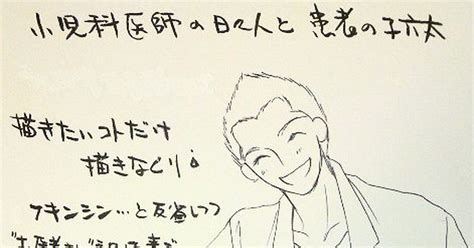 小児科医師の日々人と患者の子六太
描きたいコトだけ
描きなぐり。
フキンシン…と反省しつつ